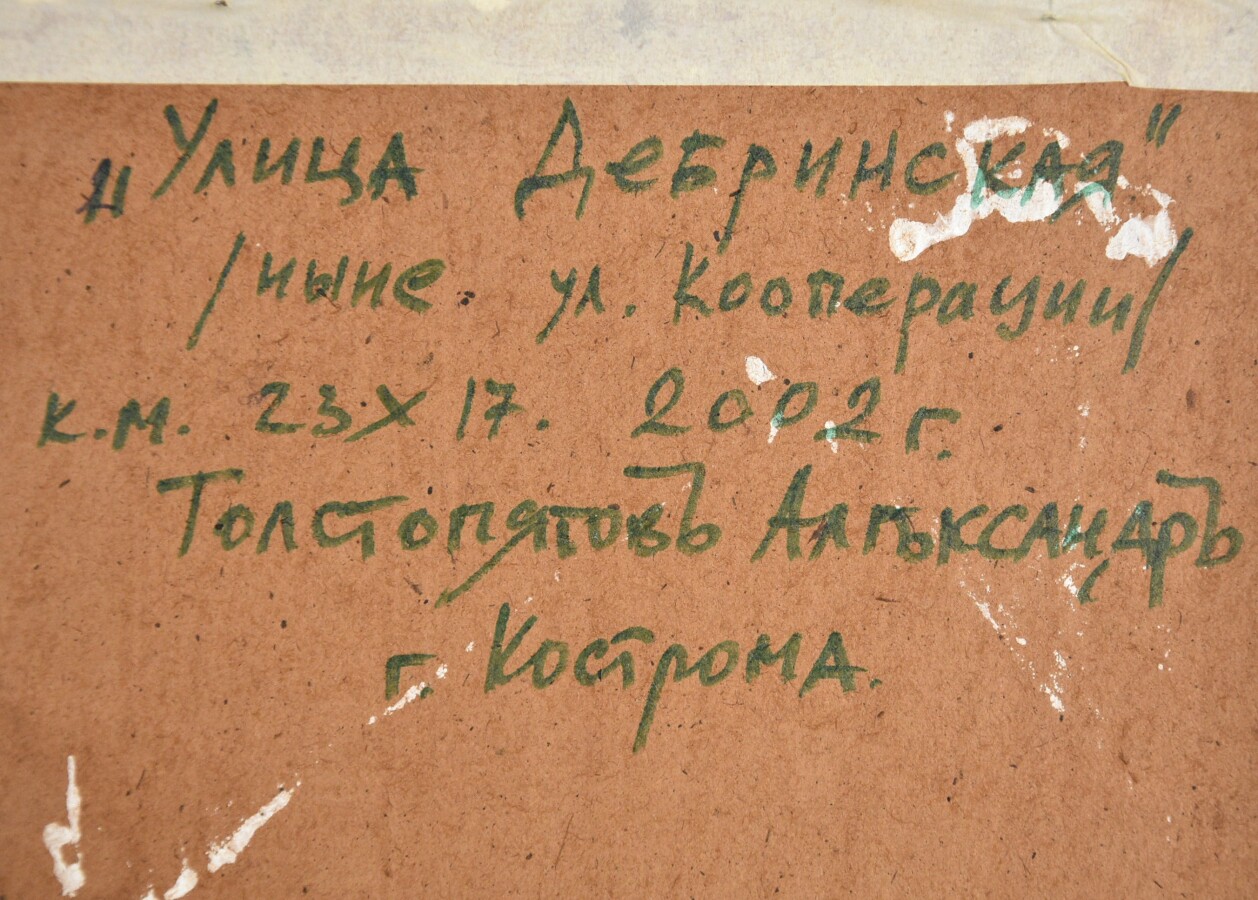 „Улица Дебринская"
/ныне ул. Кооперации/
к.м. 23х17. 2002 г.
Толстопятовъ Алѣксандръ
г. Кострома.